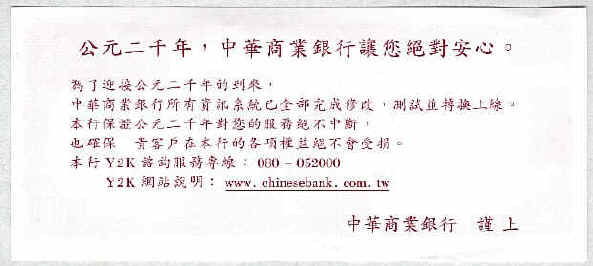 公元二千年，中華商業銀行讓您絕對安心。
為了迎接公元二千年的到來，
中華商業銀行所有資訊系統已全部完成修改，測試並轉換上線。
本行保證公元二千年對您的服務絕不中斷，
也確保　貴客戶在本行的各項權益絕不會受損。
本行 Y2K 諮詢服務專線：080－052000
Y2K 網站說明：www.chinesebank.com.tw
中華商業銀行　謹上